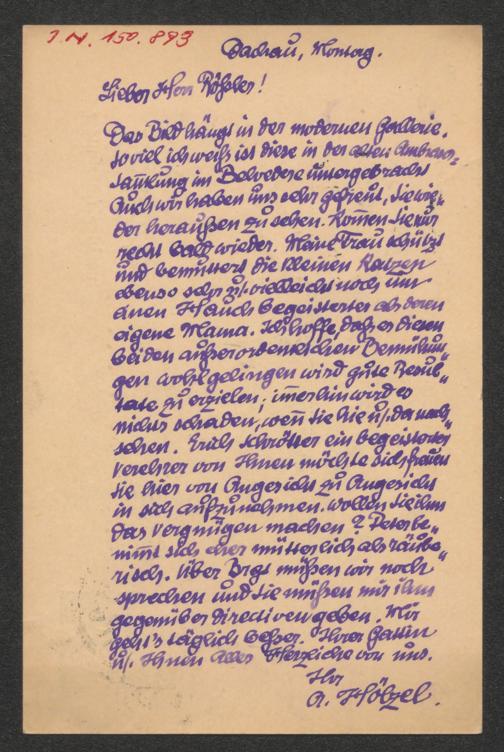 J.N. 150.893
Dachau, Montag.
Lieber Herr Rößler!
Das Bild hängt in der modernen Gallerie.
soviel ich weiß ist diese in der alten Ambraser-
sam̅lung im Belvedere untergebracht
Auch wir haben uns sehr gefreut, Sie wie„
der heraußen zu sehen. Kom̅en Sie nur
recht bald wieder. Meine Frau schützt
und bemuttert die kleinen Katzen
ebenso sehr u/. vielleicht noch um
einen Hauch begeisterter als deren
eigene Mama. Ich hoffe, daß es diesen
beiden außerordentlichen Bemühun„
gen wohl gelingen wird gute Resul„
tate zu erzielen; im̅erhin wird es
nichts schaden, wen̅ Sie hie u/. da nach„
sehen. Erich Schrötter ein begeisterter
Verehrer von Ihnen möchte sich freuen
Sie hier von Angesicht zu Angesicht
in sich aufzunehmen. Wollen Sie ihm
das Vergnügen machen? Peter be„
nim̅t sich eher mütterlich als räube„
risch. Über Orgt müßen wir noch
sprechen und Sie müßen mir ihm
gegenüber directiven geben. Mir
geht's täglich beßer. Ihrer Gattin
u/. Ihnen alles Herzliche von uns.
Ihr
A. Hölzel.